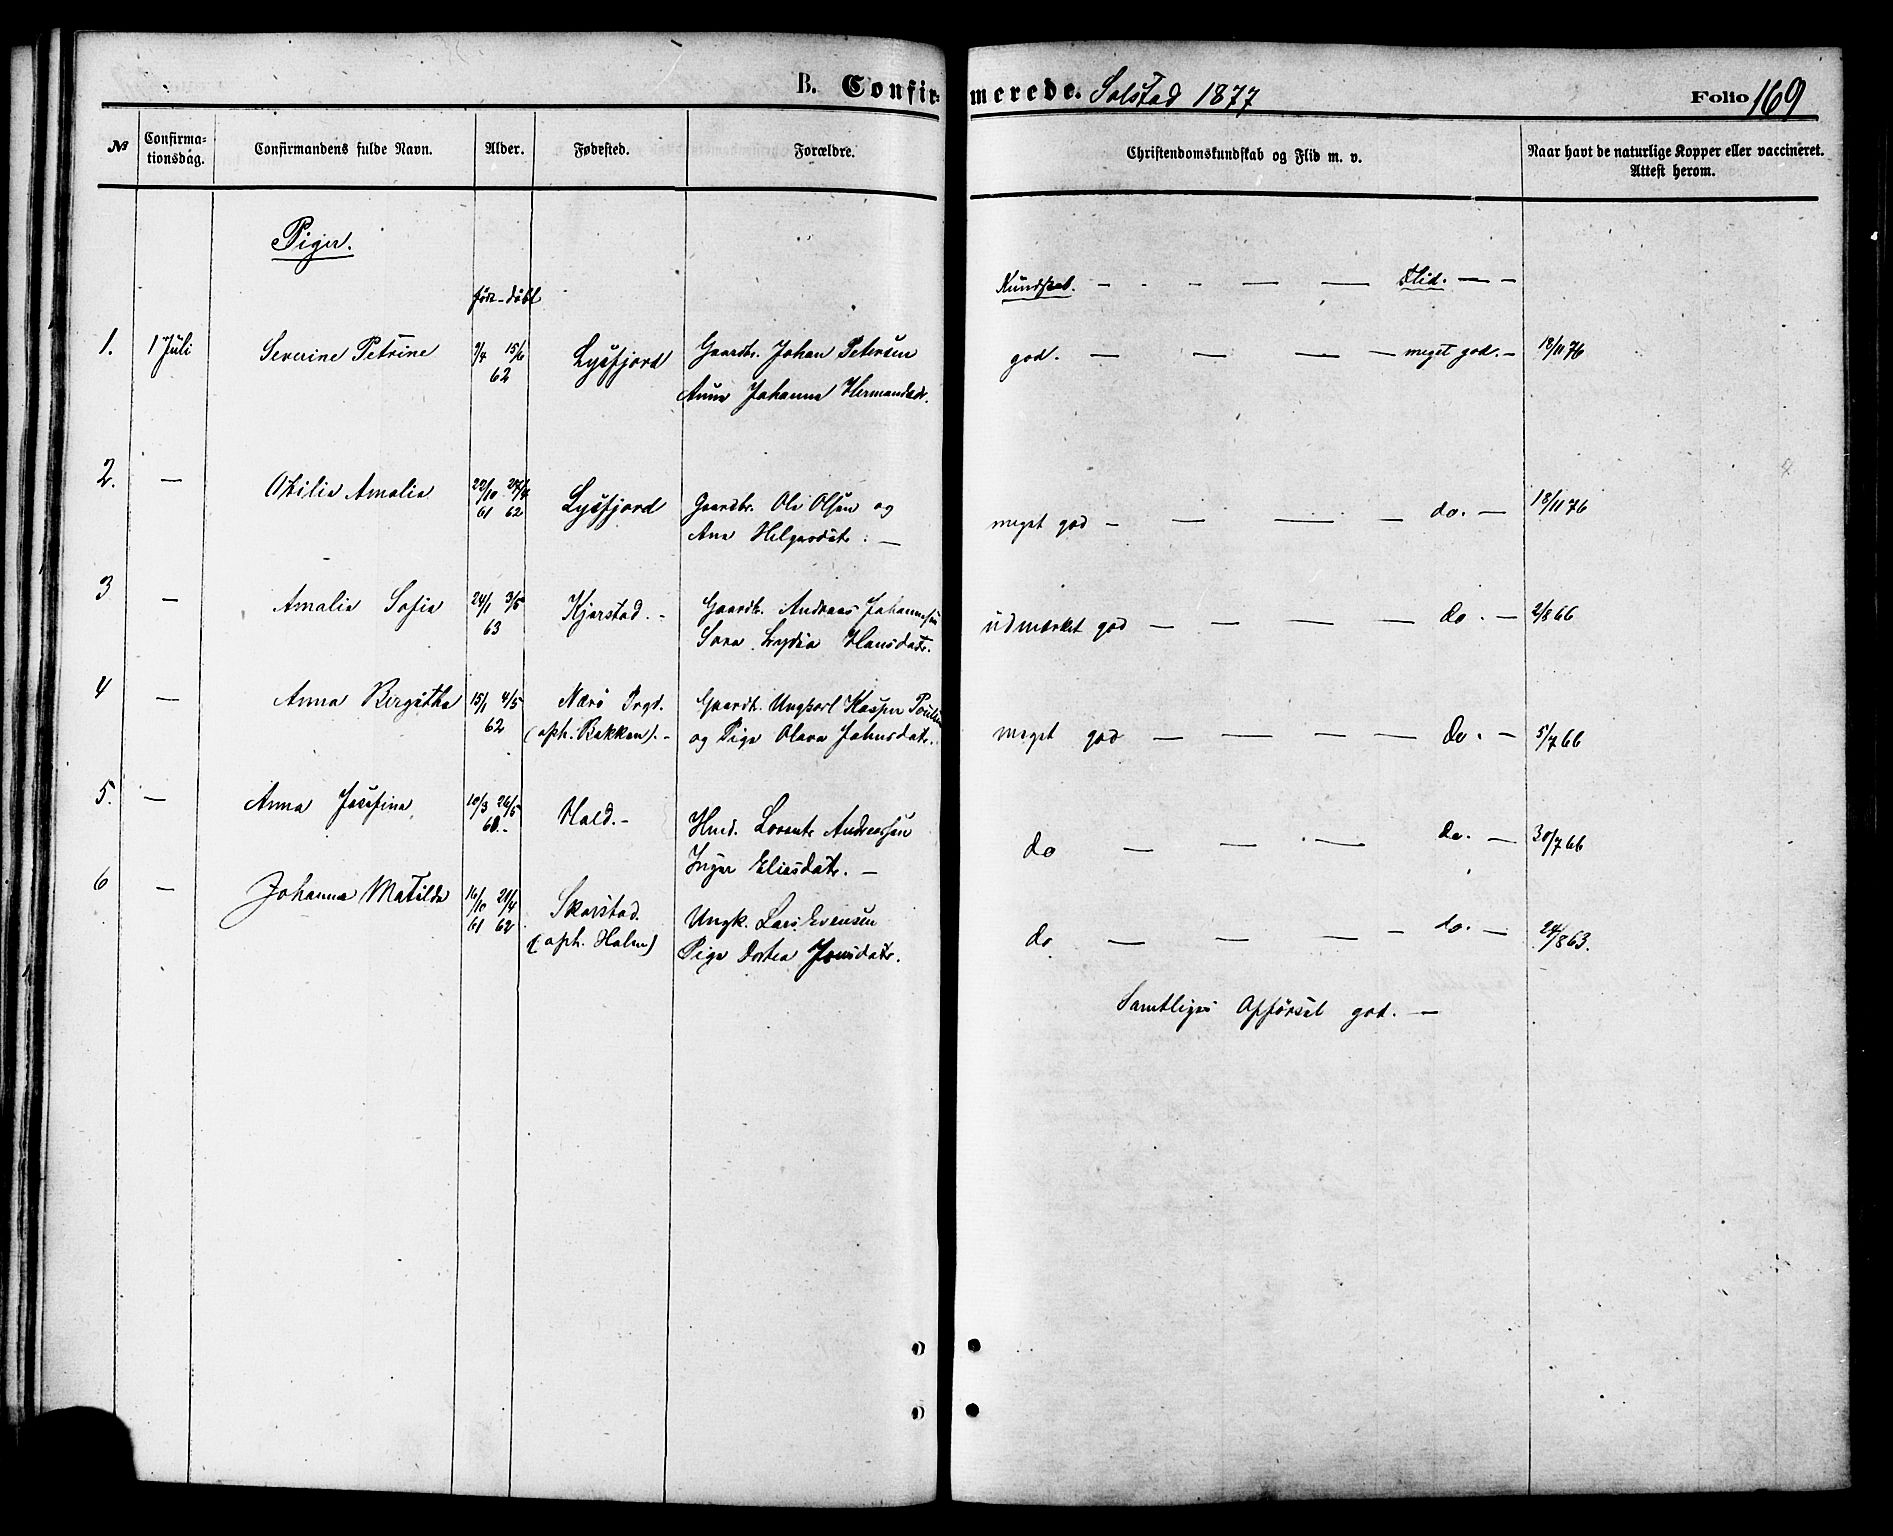 B. Confirmerede. Solstad 1877 Folio 169
№ Confirmationsdag. Confirmandens fulde Navn. Alder. Fødested. Forældre. Christendomskundskab og Flid m. v. Naar havt de naturlige Kopper eller vaccineret. Attest herom.
Piger.
født døbt Kundskab. — - - — — Flid. — -
1. 1 Juli Severine Petrine 9/4 15/6 62 Lysfjord Gaardbr. Johan Petersen god. — — — — meget god. - 18/11 76
Anna Johanna Hermandsdr.
2. — Otilie Amalie 22/10 61 27/4 62 Lysfjord Gaardbr. Ole Olsen og meget god - — — — do. — 18/11 76
Ane Helgesdatr. —
3 — Amalie Sofie 24/1 3/5 63 Kjerstad. - Gaardb. Andreas Johannesen udmærket god — — — — do. - 2/8 66
Sara Lydia Hansdatr.
4 — Anna Birgitha 15/1 4/5 62 Nærø Prgd. Gaardb. Ungkarl Kasper Poulsen
(oph. Bakken). - og Pige Olava Johnsdatr. meget god — — — — do. - 5/7 66
5. — Anna Josefine 10/3 26/5 60. - Hald. - Hmd. Lorents Andreassen do — — — — do. — 30/7 66
Inger Eliasdatr. —
6 — Johanna Matilde 16/10 61 21/4 62 Skarstad. Ungk. Lars Evensen do — — — - do. — 24/8 63.
(oph. Holm) Pige Dortea Jonsdatr.
Samtliges Opførsel god. —